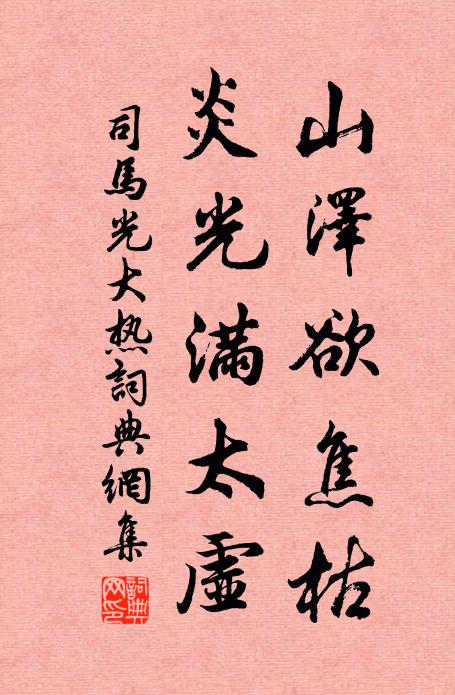 山澤欲焦枯
炎光滿太虛
司馬光大热詞典網集
詞典網印